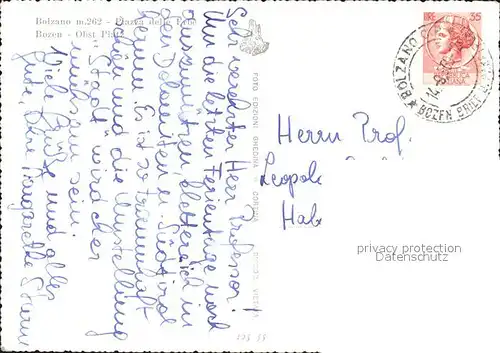 Bolzano m.262 - Piazza delle Erbe
Bozen - Obst Platz
Sehr verehrter Herr Professor!
Um die letzten Ferientage noch
auszunützen, klettere ich in
den Dolomiten u. Südtirol
herum. Es ist so traumhaft
schön und die Umstellung
"Stadt" wird schwer
mühsam sein.
Viele Grüße und alles
Gute, Ihre Margarethe
FOTO EDIZIONI GHEDINA CORTINA
LIRE 35
BOLZANO
BOZEN
Herrn Prof.
Leopold
privacy protection